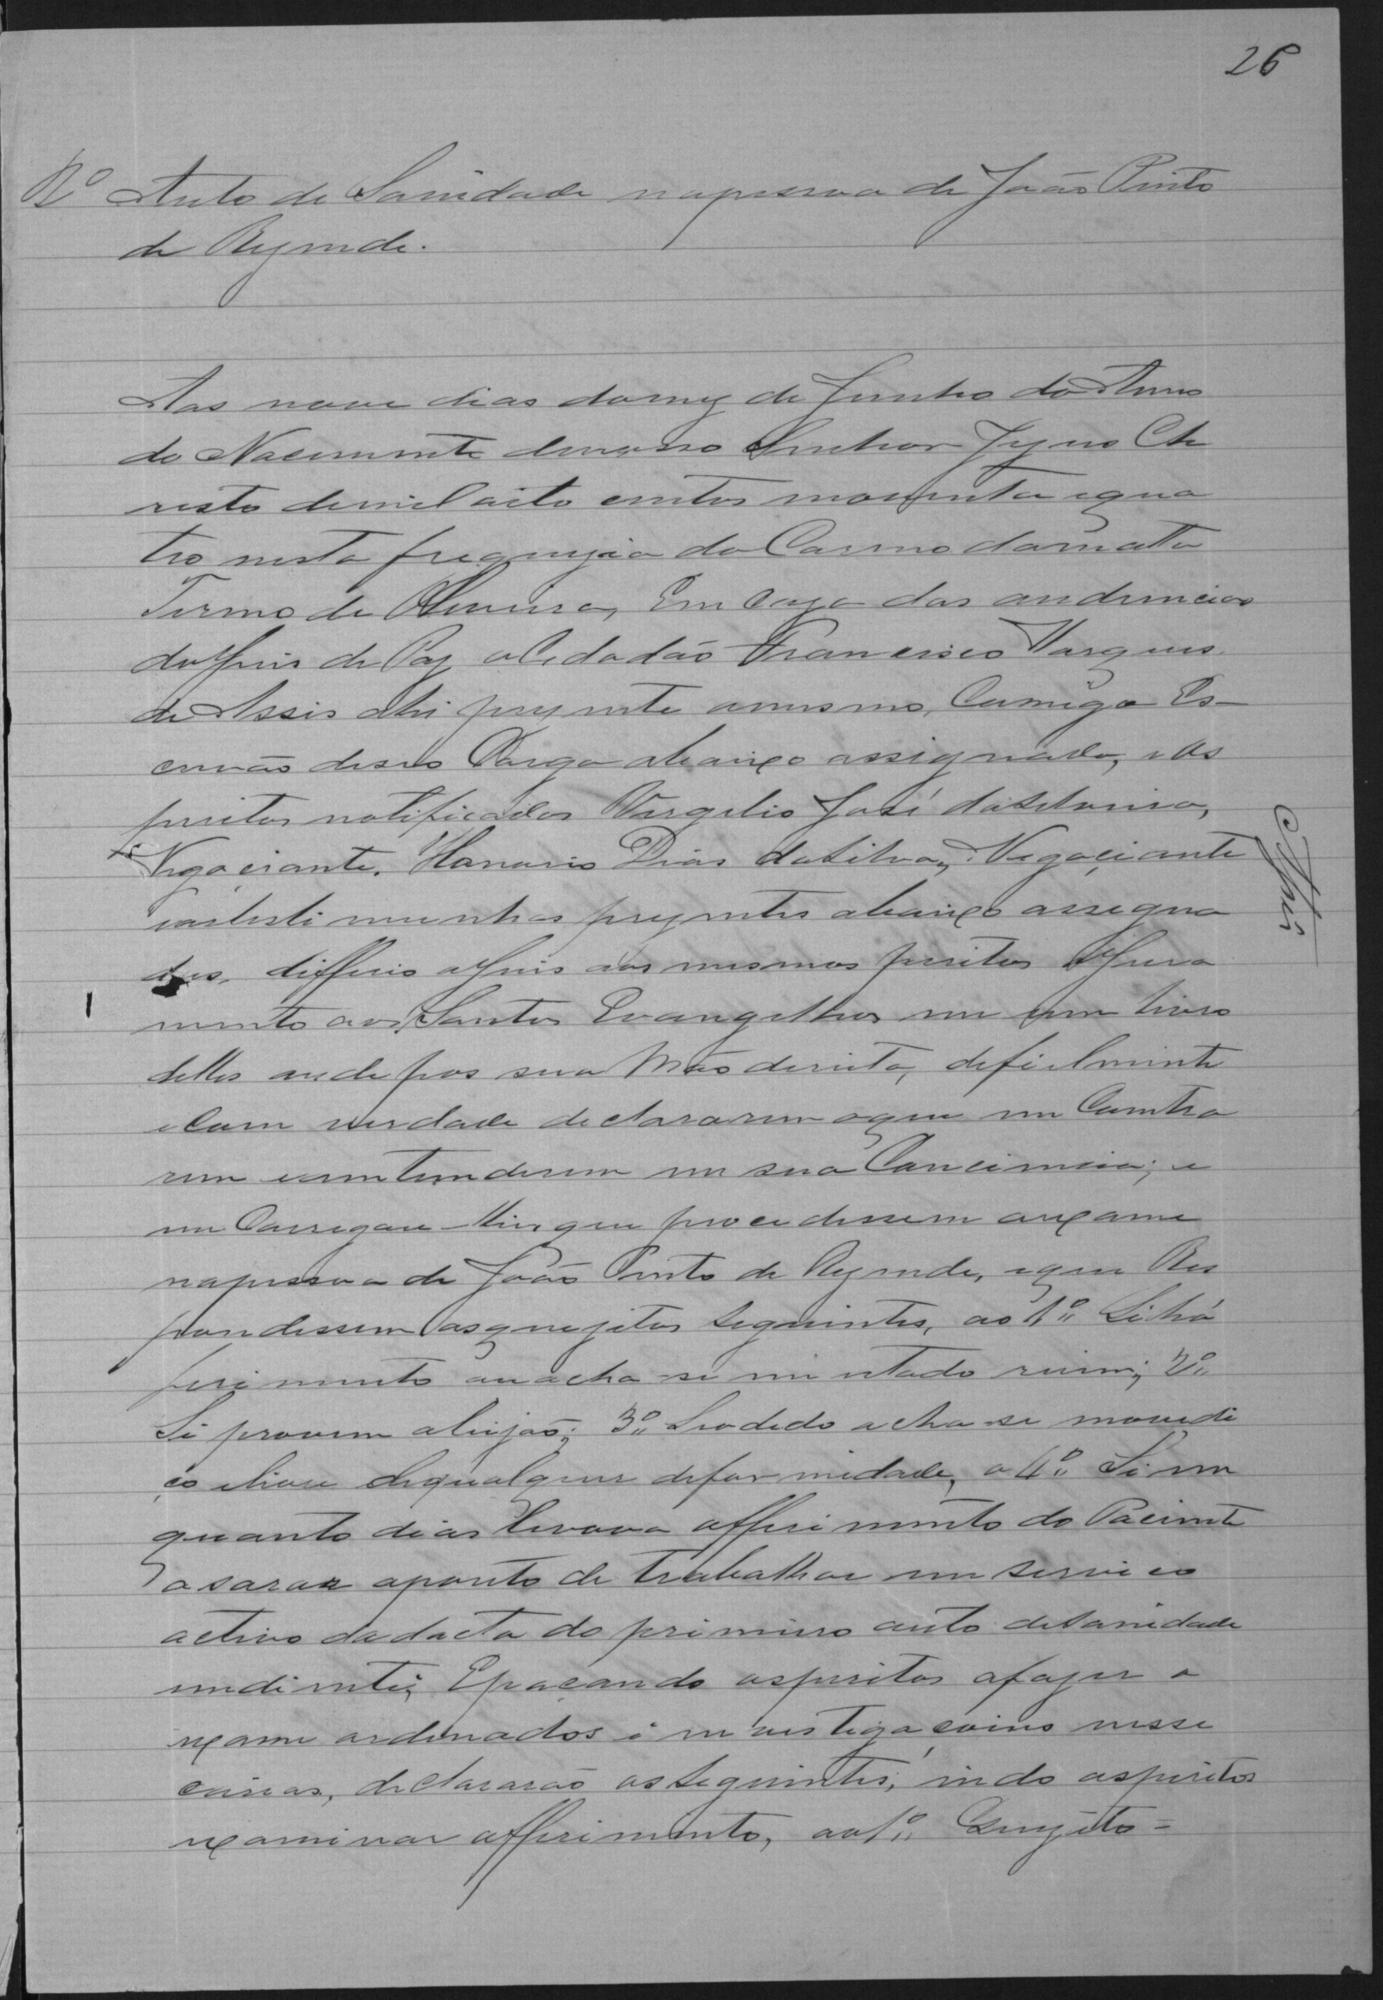 26
Nº Auto de Sanidade napessoa de João Pinto
de Resende.
Aos nove dias domez de Junho do Anno
do Nacimento denosso Senhor Jezus Ch
risto demil oito centos noventa equa
tro nesta freguezia do Carmo damatta
Termo de Oliveira, Em Caza das audiencias
do Juis de Paz o Cidadão Francisco Marques
de Assis ahi prezente omesmo, Comigo Es-
crivão deseo Cargo abaixo assignado, e os
peritos notificados Vergilio José da
Negociante, Honorio Dias da Silva, Negociante
eastestimunhas prezentes abaixo assegna
dos, differio o Juis aos mesmos peritos o Jura
mento aos Santos Evangelhos em um livro
delles em de pos sua Mão dereita, defielmente
e Com verdade declararem oque em Contra
rem e em tenderem em sua Conciencia; e
em Carregou-lhis que procedessem a exame
napessoa de João Pinto de Rezende, e que Res
pondessem os quezitos Seguintes, ao 1º Si há
ferimento ou acha-se em estado ruim; 2º
Si provem aleijaõ; 3º Seo dedo acha-se movedi
ço e livre de qualquer deformidade, o 4º Si em
quanto dias levava offerimento do Paciente
a sarar aponto de trabalhar em serviço
activo da dacta do primeiro auto de Sanidade
endiente; Epaçando os peritos afazer o
exame ordenados i investigacoins nesse
çarias, declararão os Seguintes; indo os peritos
examinar offerimento, ao 1º Quezito =